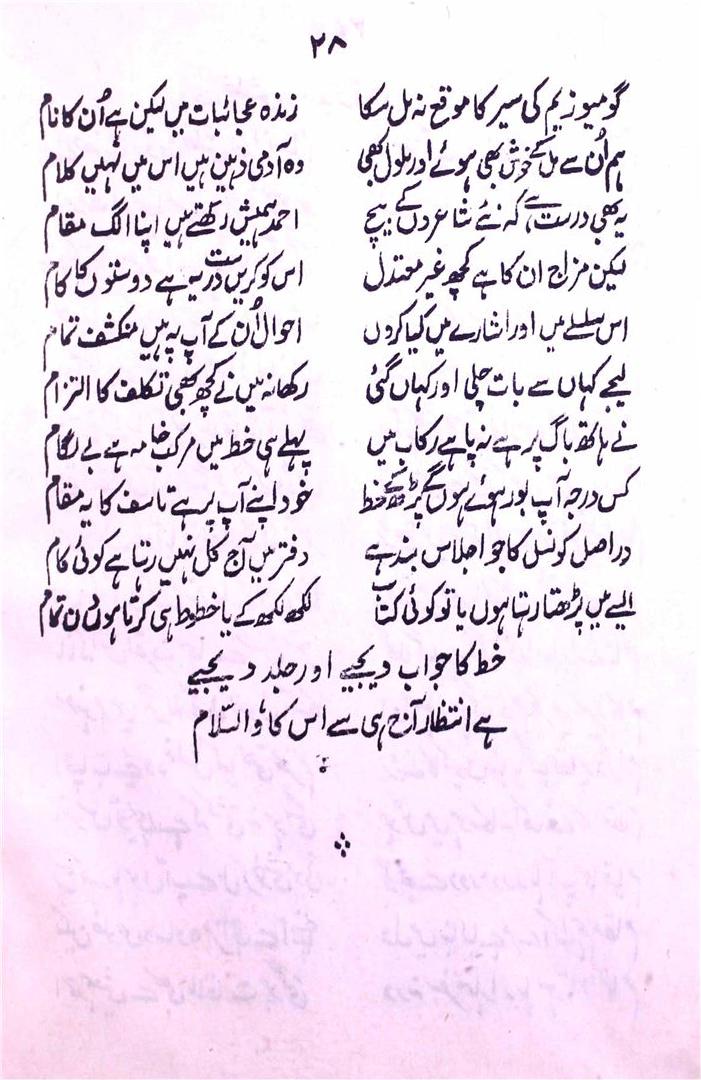 ۲۸
گو میوزیم کی سیر کا موقع نہ مل سکا زندہ عجائبات میں لیکن ہے اُن کا نام
ہم اُن سے مل کے خوش بھی ہوئے اور ملول بھی وہ آدمی ذہین ہیں اس میں نہیں کلام
یہ بھی درست ہے کہ نئے شاعروں کے بیچ احمد ہمیش رکھتے ہیں اپنا الگ مقام
لیکن مزاج ان کا ہے کچھ غیر معتدل اس کو کریں درست یہ ہے دوستوں کا کام
اس سلسلے میں اور اشارے میں کیا کروں احوال اُن کے آپ پہ ہیں منکشف تمام
لیجے کہاں سے بات چلی اور کہاں گئی رکھا نہ میں نے کچھ بھی تکلف کا التزام
نے ہاتھ باگ پر ہے نہ پا ہے رکاب میں پہلے ہی خط میں مرکب خامہ ہے بے لگام
کس درجہ آپ بور ہوئے ہوں گے پڑھ کے خط خود اپنے آپ پر ہے تاسف کا یہ مقام
دراصل کونسل کا جو اجلاس بند ہے دفتر میں آج کل نہیں رہتا ہے کوئی کام
ایسے میں پڑھتا رہتا ہوں یا تو کوئی کتاب لکھ لکھ کے یا خطوط ہی کرتا ہوں دن تمام
خط کا جواب دیجیے اور جلد دیجیے
ہے انتظار آج ہی سے اس کا، والسّلام